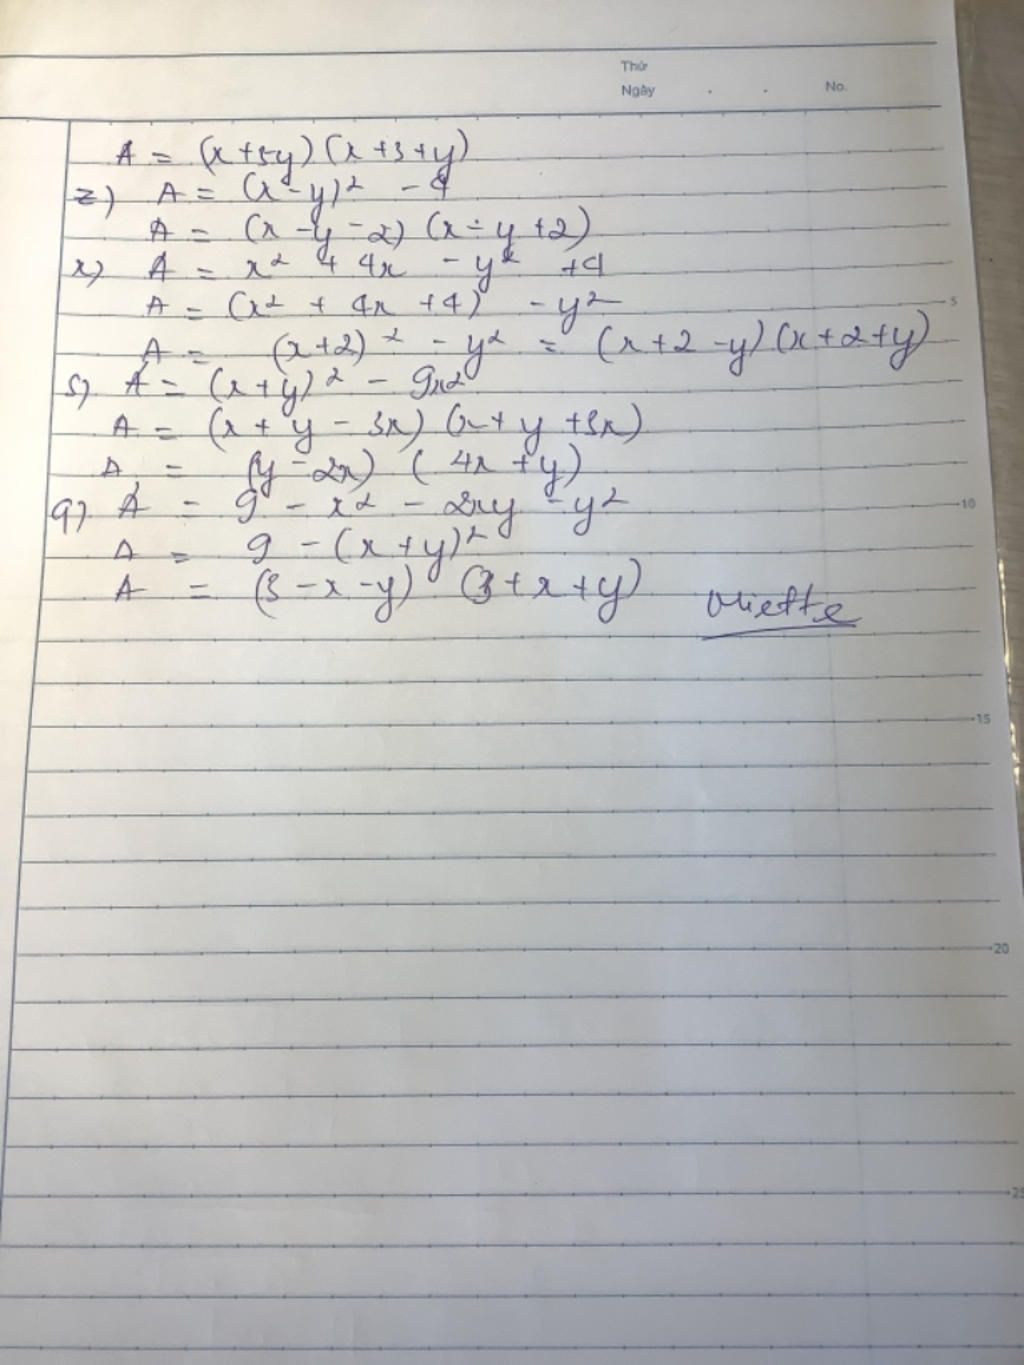 Thứ
Ngày . . No.
A = (x+5y)(x+3+y)
z) A = (x-y)² - 4
A = (x-y-2)(x-y+2)
x) A = x² + 4x - y² + 4
A = (x² + 4x + 4) - y²
5
A = (x+2)² - y² = (x+2-y)(x+2+y)
s) A = (x+y)² - 9x²
A = (x+y-3x)(x+y+3x)
A = (y-2x)(4x+y)
q) A = 9 - x² - 2xy - y²
10
A = 9 - (x+y)²
A = (3-x-y)(3+x+y)
15
20
25